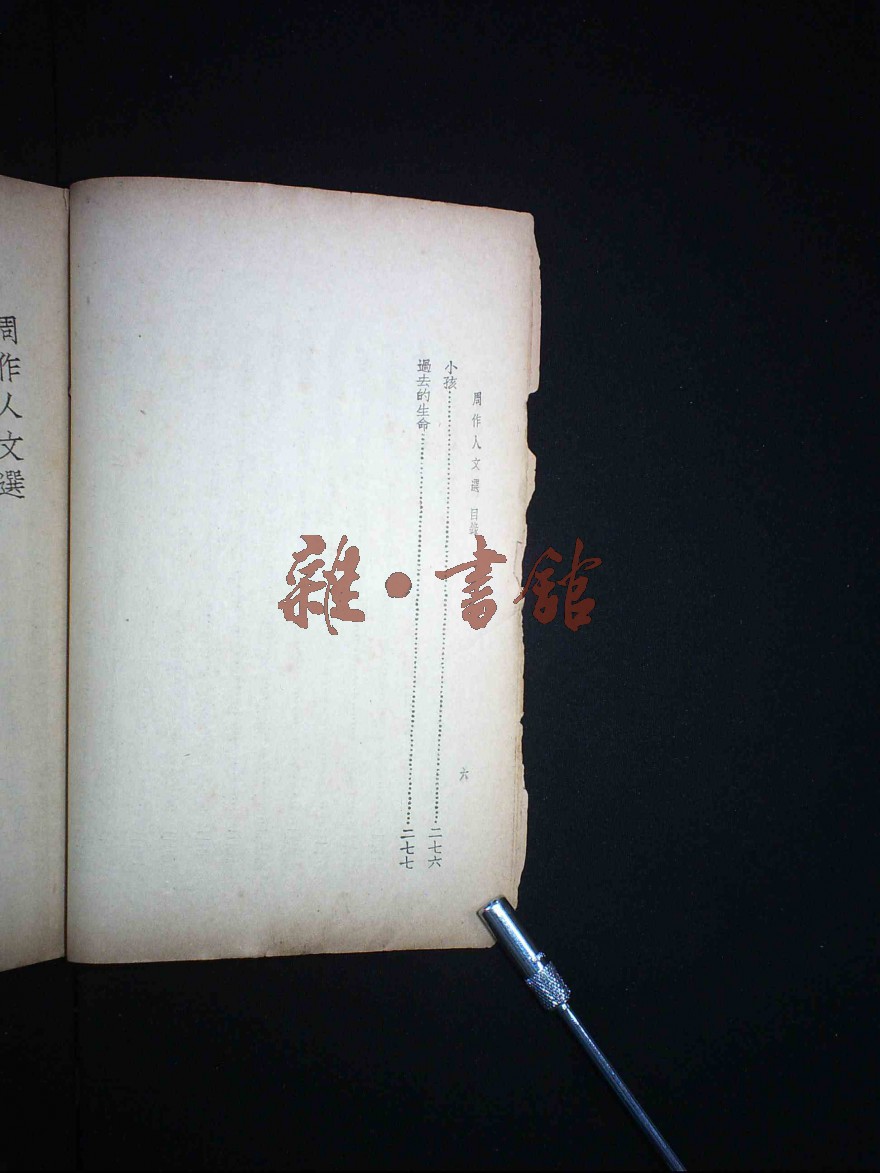 周作人文選 目錄
六
小孩……二七六
過去的生命……二七七
周作人文選
雜·書舘